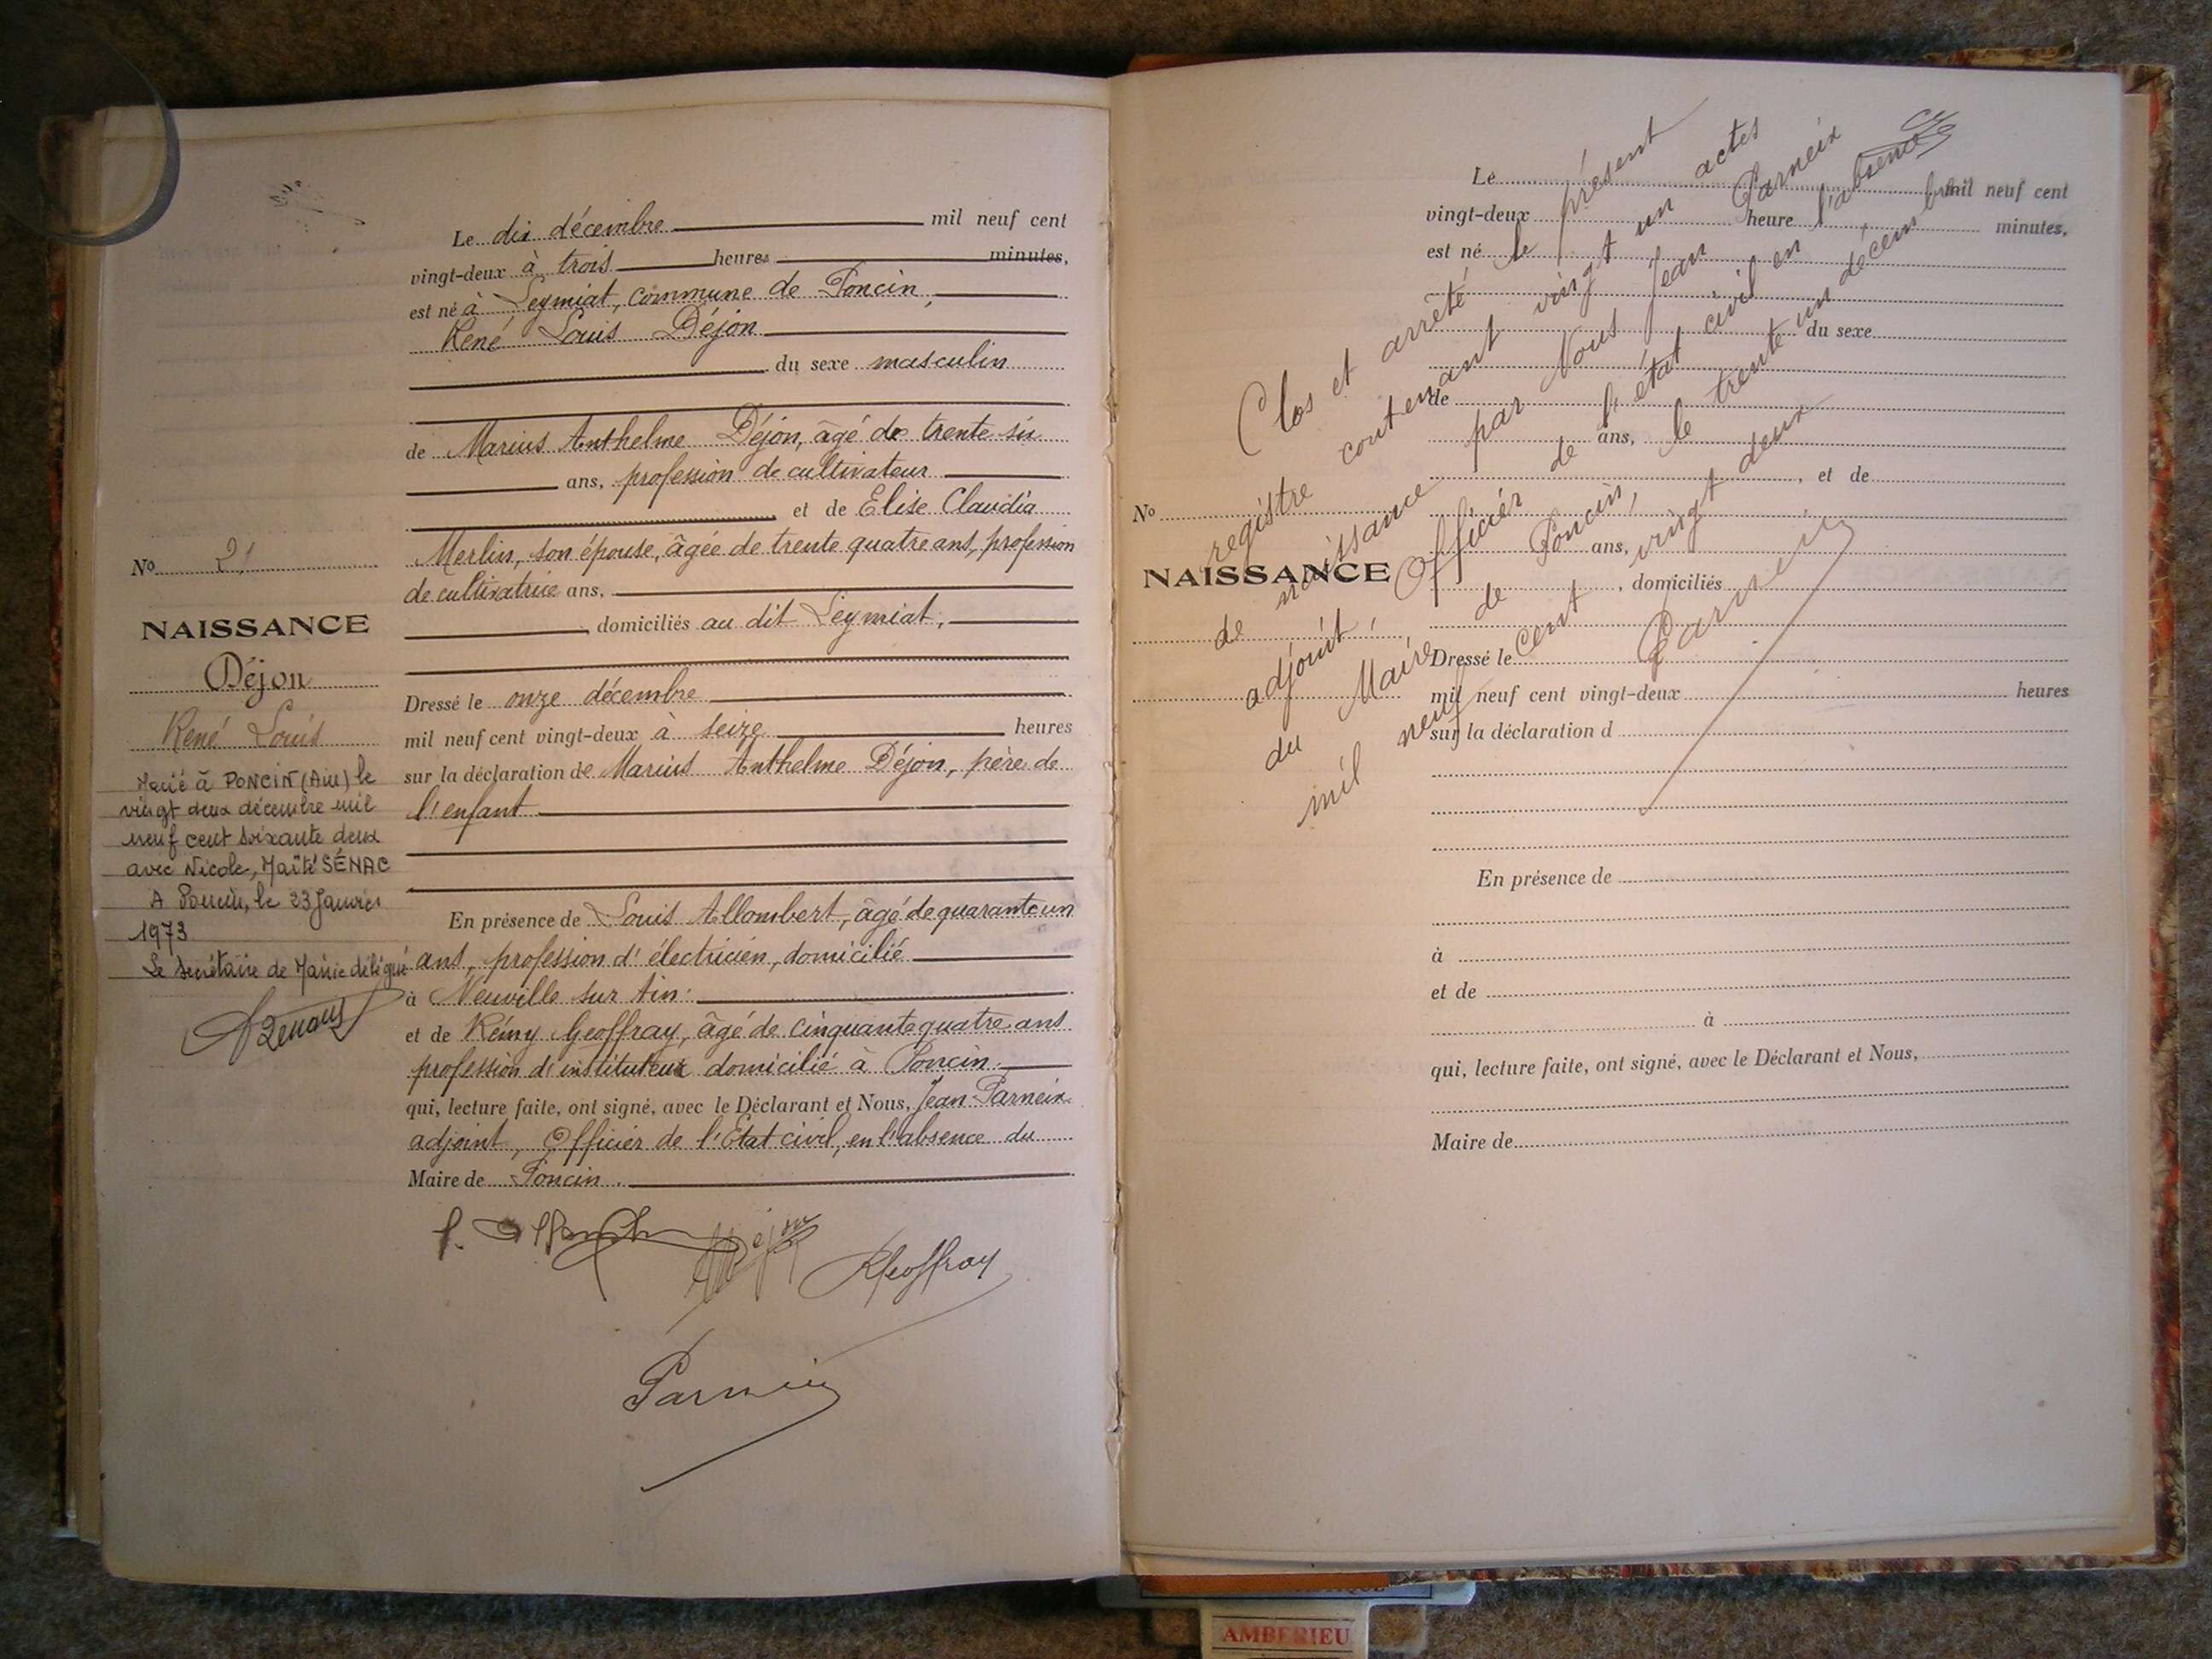 Le dix décembre mil neuf cent
vingt-deux à trois heures minutes,
est né à Leymiat, commune de Poncin,
René Louis Déjon
du sexe masculin
de Marius Anthelme Déjon, âgé de trente six
ans, profession de cultivateur
et de Elise Claudia
Merlin, son épouse, âgée de trente quatre ans, profession
de cultivatrice ans,
domiciliés au dit Leymiat,
Dressé le onze décembre
mil neuf cent vingt-deux à seize heures
sur la déclaration de Marius Anthelme Déjon, père de
l'enfant
En présence de Louis Allombert, âgé de quarante un
ans, profession d'électricien, domicilié
à Neuville sur Ain.
et de Rémy Geoffray, âgé de cinquante quatre ans
profession d'instituteur domicilié à Poncin.
qui, lecture faite, ont signé, avec le Déclarant et Nous, Jean Parneix
adjoint, Officier de l'Etat civil, en l'absence du
Maire de Poncin.
Geoffray
Parneix
No 21
NAISSANCE
Déjon
René Louis
Marié à PONCIN (Ain) le
vingt deux décembre mil
neuf cent soixante deux
avec Nicole, Maïté SÉNAC
A Poncin, le 23 Janvier
1973
Le secrétaire de Mairie délégué
Le mil neuf cent
vingt-deux heure minutes,
est né
du sexe
de
ans,
, et de
ans,
, domiciliés
Dressé le
mil neuf cent vingt-deux heures
sur la déclaration d
En présence de
à
et de
à
qui, lecture faite, ont signé, avec le Déclarant et Nous,
Maire de
No
NAISSANCE
Clos et arrêté le présent
registre contenant vingt un actes
de naissance par Nous Jean Parneix
adjoint, Officier de l'état civil en l'absence
du Maire de Poncin, le trente un décembre
mil neuf cent vingt deux
Parneix
AMBERIEU